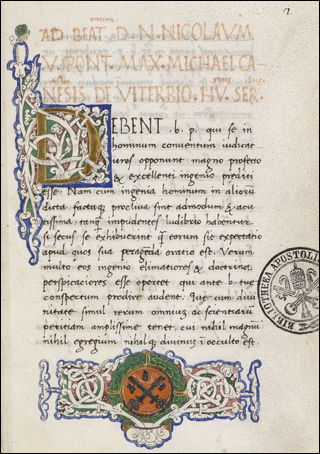 2
AD. BEAT. D. N. NICOLAVM
V. PONT. MAX. MICHAEL CA
NESIS. DE VITERBIO. HV. SER.
DEBENT. b. p. qui se in
hominum conventum iudicat
uros opponunt magno profecto
& excellenti ingenio prediti
esse. Nam cum ingenia hominum in alioru
dicta factaq proclivia sint admodum & acu
tissima tanq impudentes ludibrio habentur
si secus se exhibuerint q eorum sit expectatio
apud quos sua peragenda oratio est. Verum
multo eos ingenio elimatiores & doctrina
perspicaciores esse oportet qui ante b. tue
conspectum prodire audent. Que cum divi
nitate simul rerum omnium ac scientiaru
peritiam amplissime tenet, cui nihil magnu
nihil egregium nihilq divinius i occulto est.
BIBLIOTHECA APOSTOLI